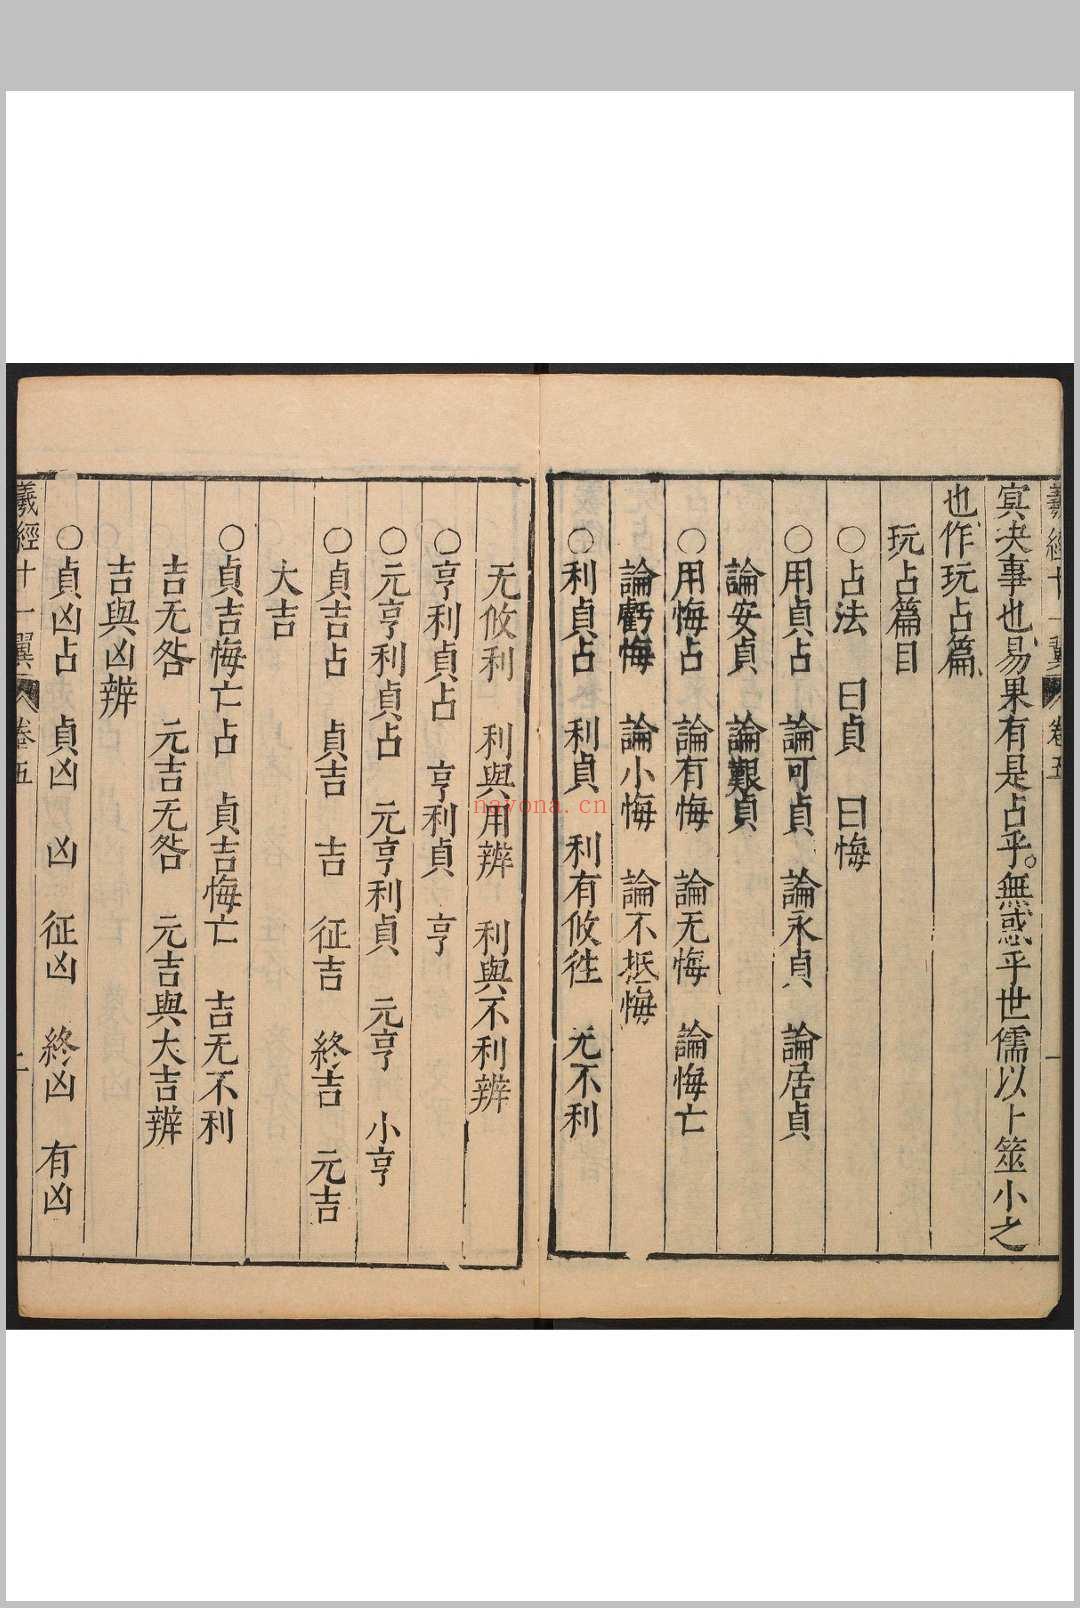 冥决事也易果有是占乎。無惑乎世儒以卜筮小之
也作玩占篇
玩占篇目
○占法 曰貞 曰悔
○用貞占 論可貞 論永貞 論居貞
論安貞 論艱貞
○用悔占 論有悔 論无悔 論悔亡
論虧悔 論小悔 論不抵悔
○利貞占 利貞 利有攸徃 无不利
无攸利 利與用辨 利與不利辨
○亨利貞占 亨利貞 亨
○元亨利貞占 元亨利貞 元亨 小亨
○貞吉占 貞吉 吉 征吉 終吉 元吉
大吉
○貞吉悔亡占 貞吉悔亡 吉无不利
吉无咎 元吉无咎 元吉與大吉辨
吉與凶辨
○貞凶占 貞凶 凶 征凶 終凶 有凶
羲經十一翼 卷五
nayona.cn